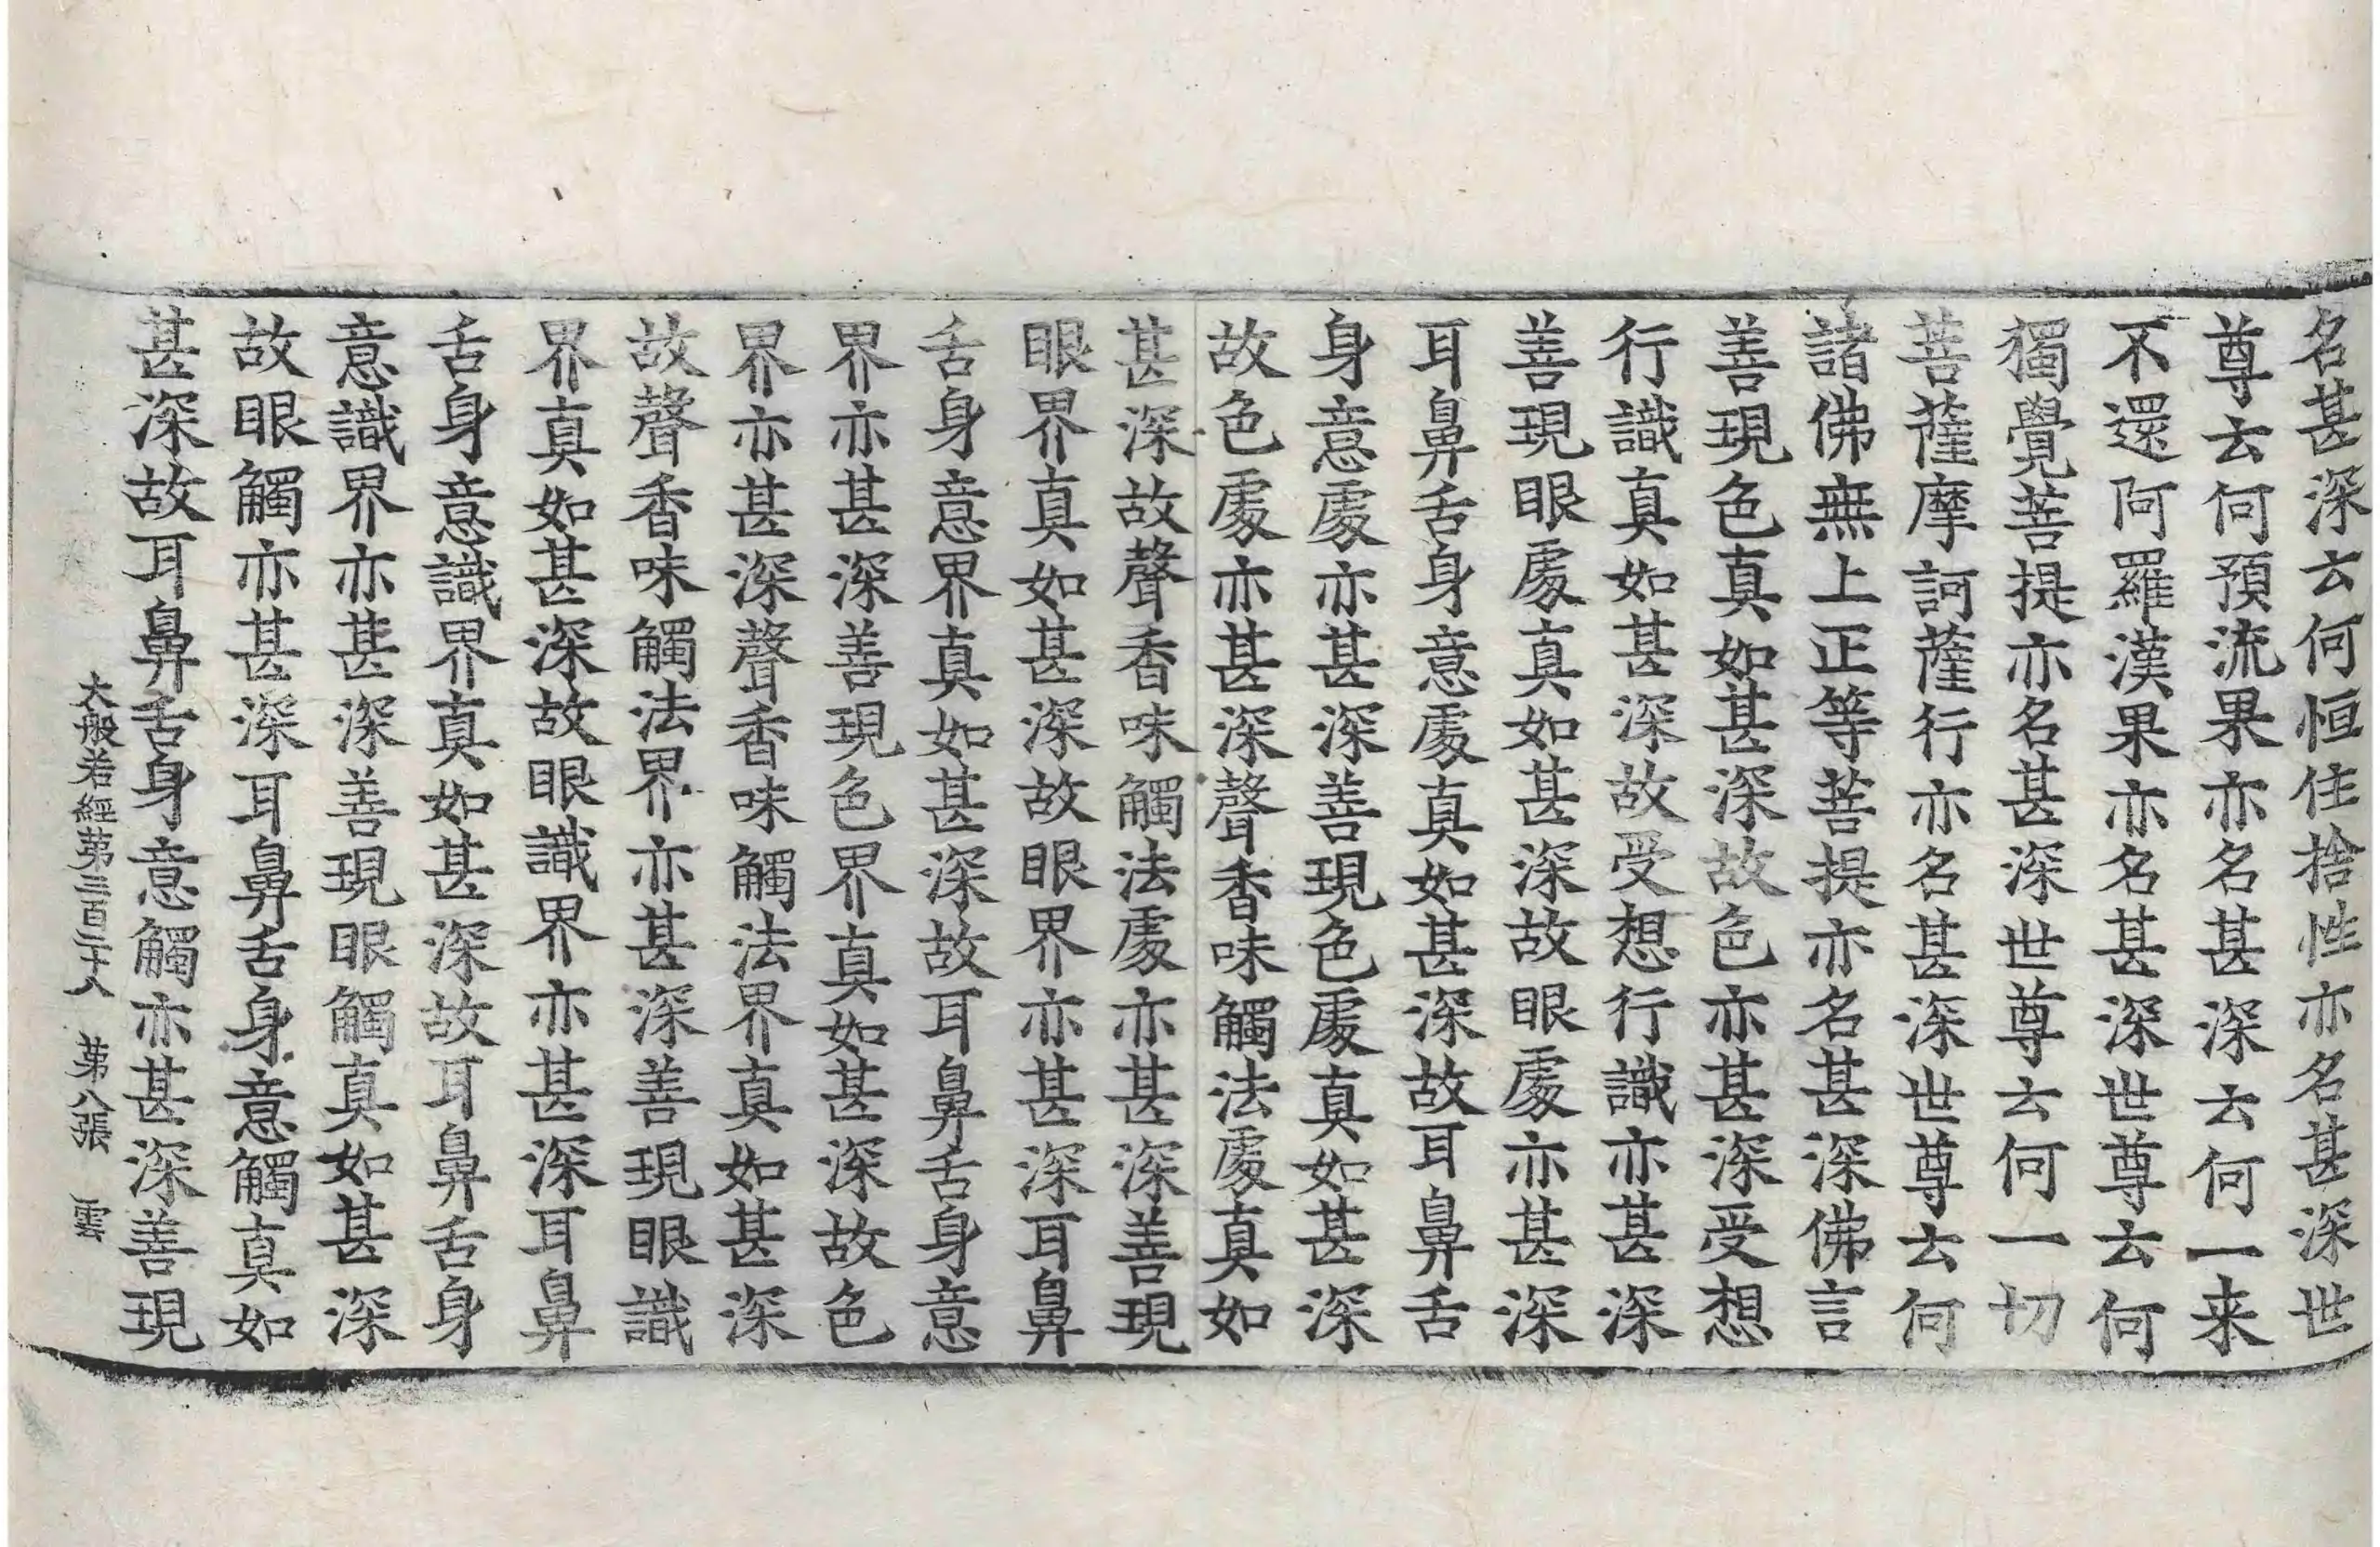 名甚深云何恒住捨性亦名甚深世
尊云何預流果亦名甚深云何一来
不還阿羅漢果亦名甚深世尊云何
獨覺菩提亦名甚深世尊云何一切
菩薩摩訶薩行亦名甚深世尊云何
諸佛無上正等菩提亦名甚深佛言
善現色真如甚深故色亦甚深受想
行識真如甚深故受想行識亦甚深
善現眼處真如甚深故眼處亦甚深
耳鼻舌身意處真如甚深故耳鼻舌
身意處亦甚深善現色處真如甚深
故色處亦甚深聲香味觸法處真如
甚深故聲香味觸法處亦甚深善現
眼界真如甚深故眼界亦甚深耳鼻
舌身意界真如甚深故耳鼻舌身意
界亦甚深善現色界真如甚深故色
界亦甚深聲香味觸法界真如甚深
故聲香味觸法界亦甚深善現眼識
界真如甚深故眼識界亦甚深耳鼻
舌身意識界真如甚深故耳鼻舌身
意識界亦甚深善現眼觸真如甚深
故眼觸亦甚深耳鼻舌身意觸真如
甚深故耳鼻舌身意觸亦甚深善現
大般若經第三百二十八 第八張 雲